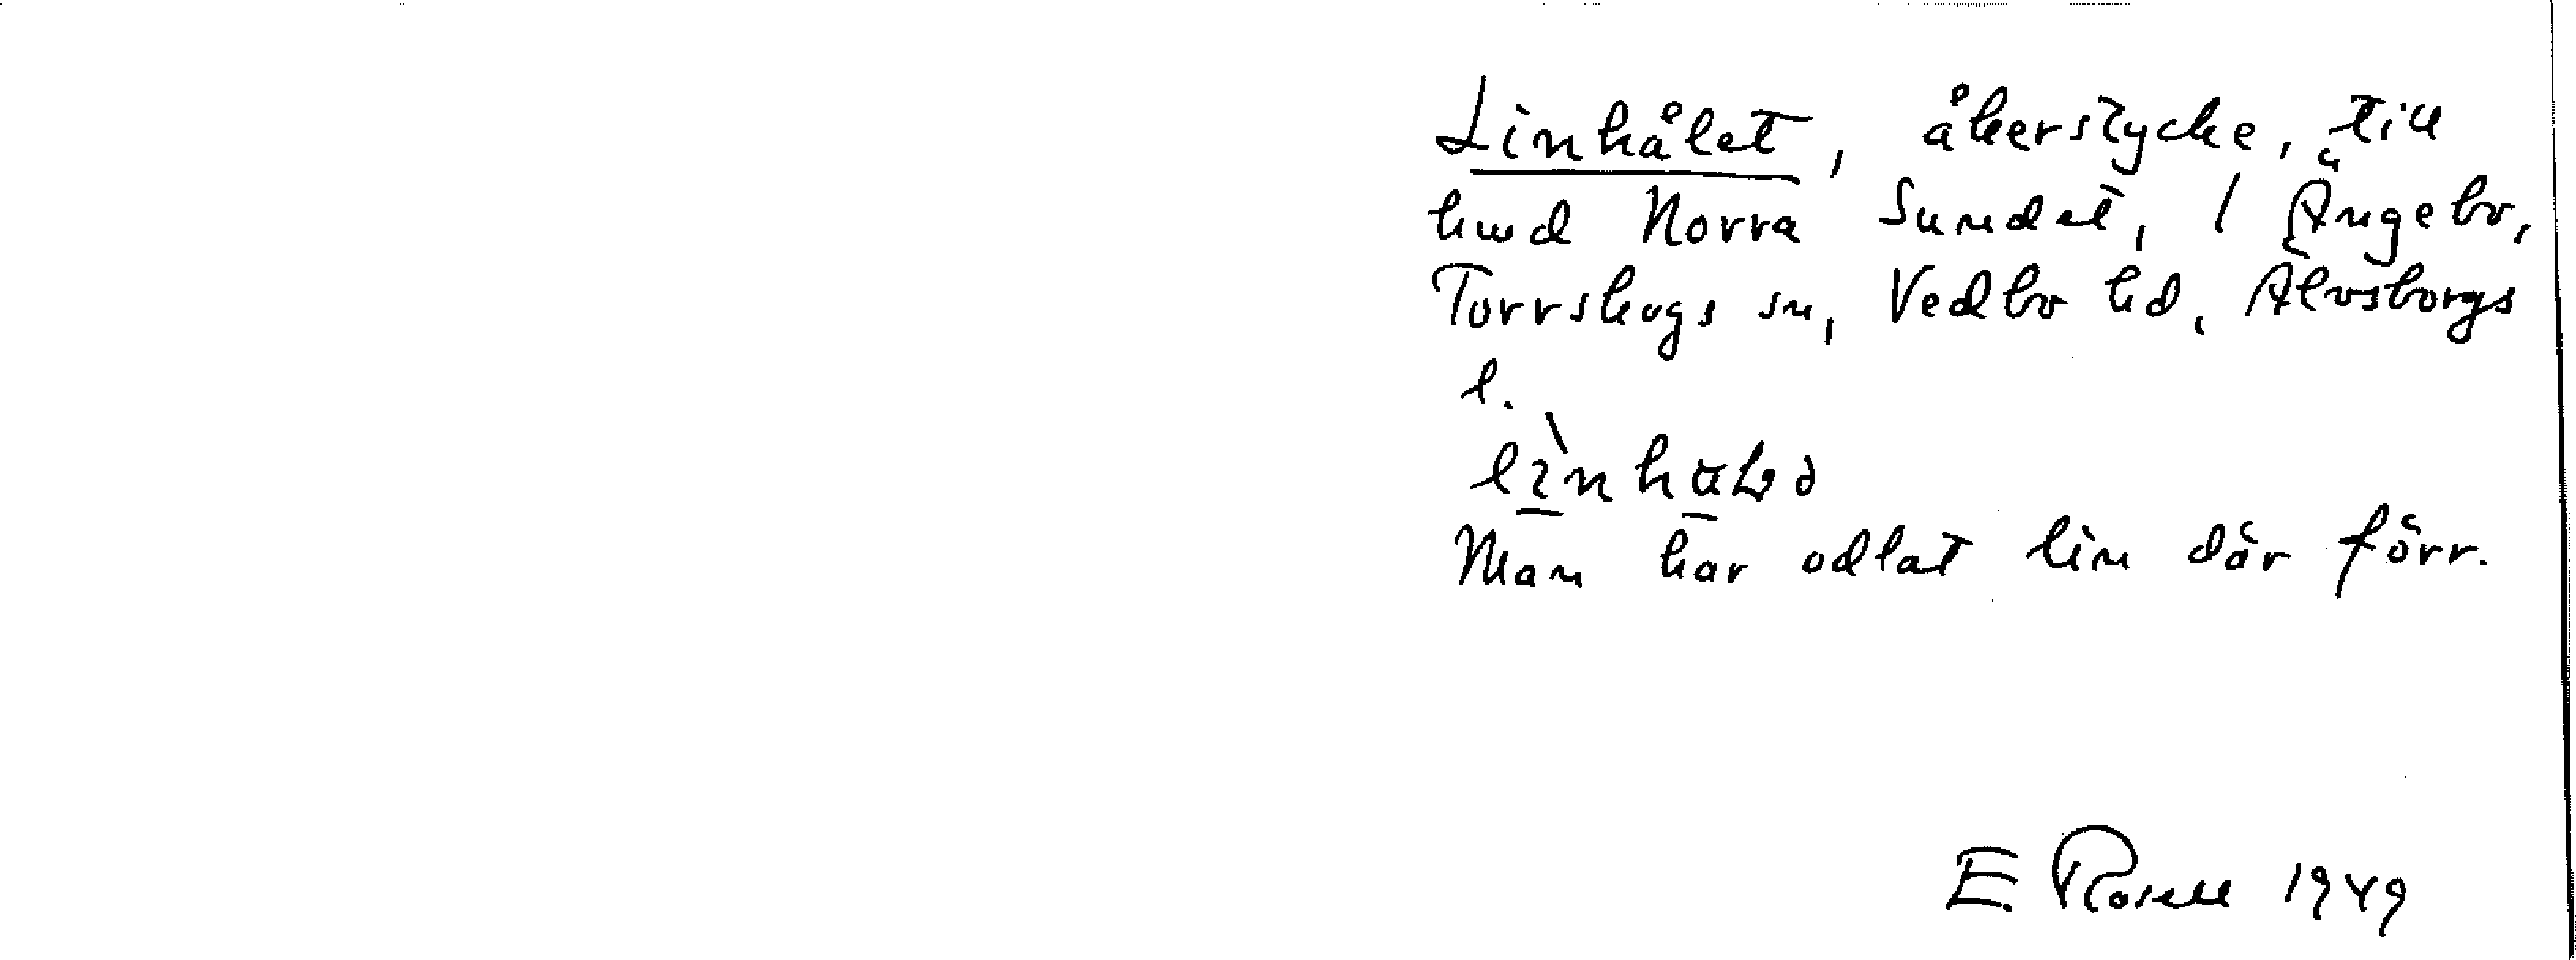 Linhålet, åkerstycke, till
hmd Norra Sundet, 1 Ängebo,
Torrskogs sn, Vedbo hd, Älvsborgs
l.
Man har odlat lin där förr.
E. Rosell 1949